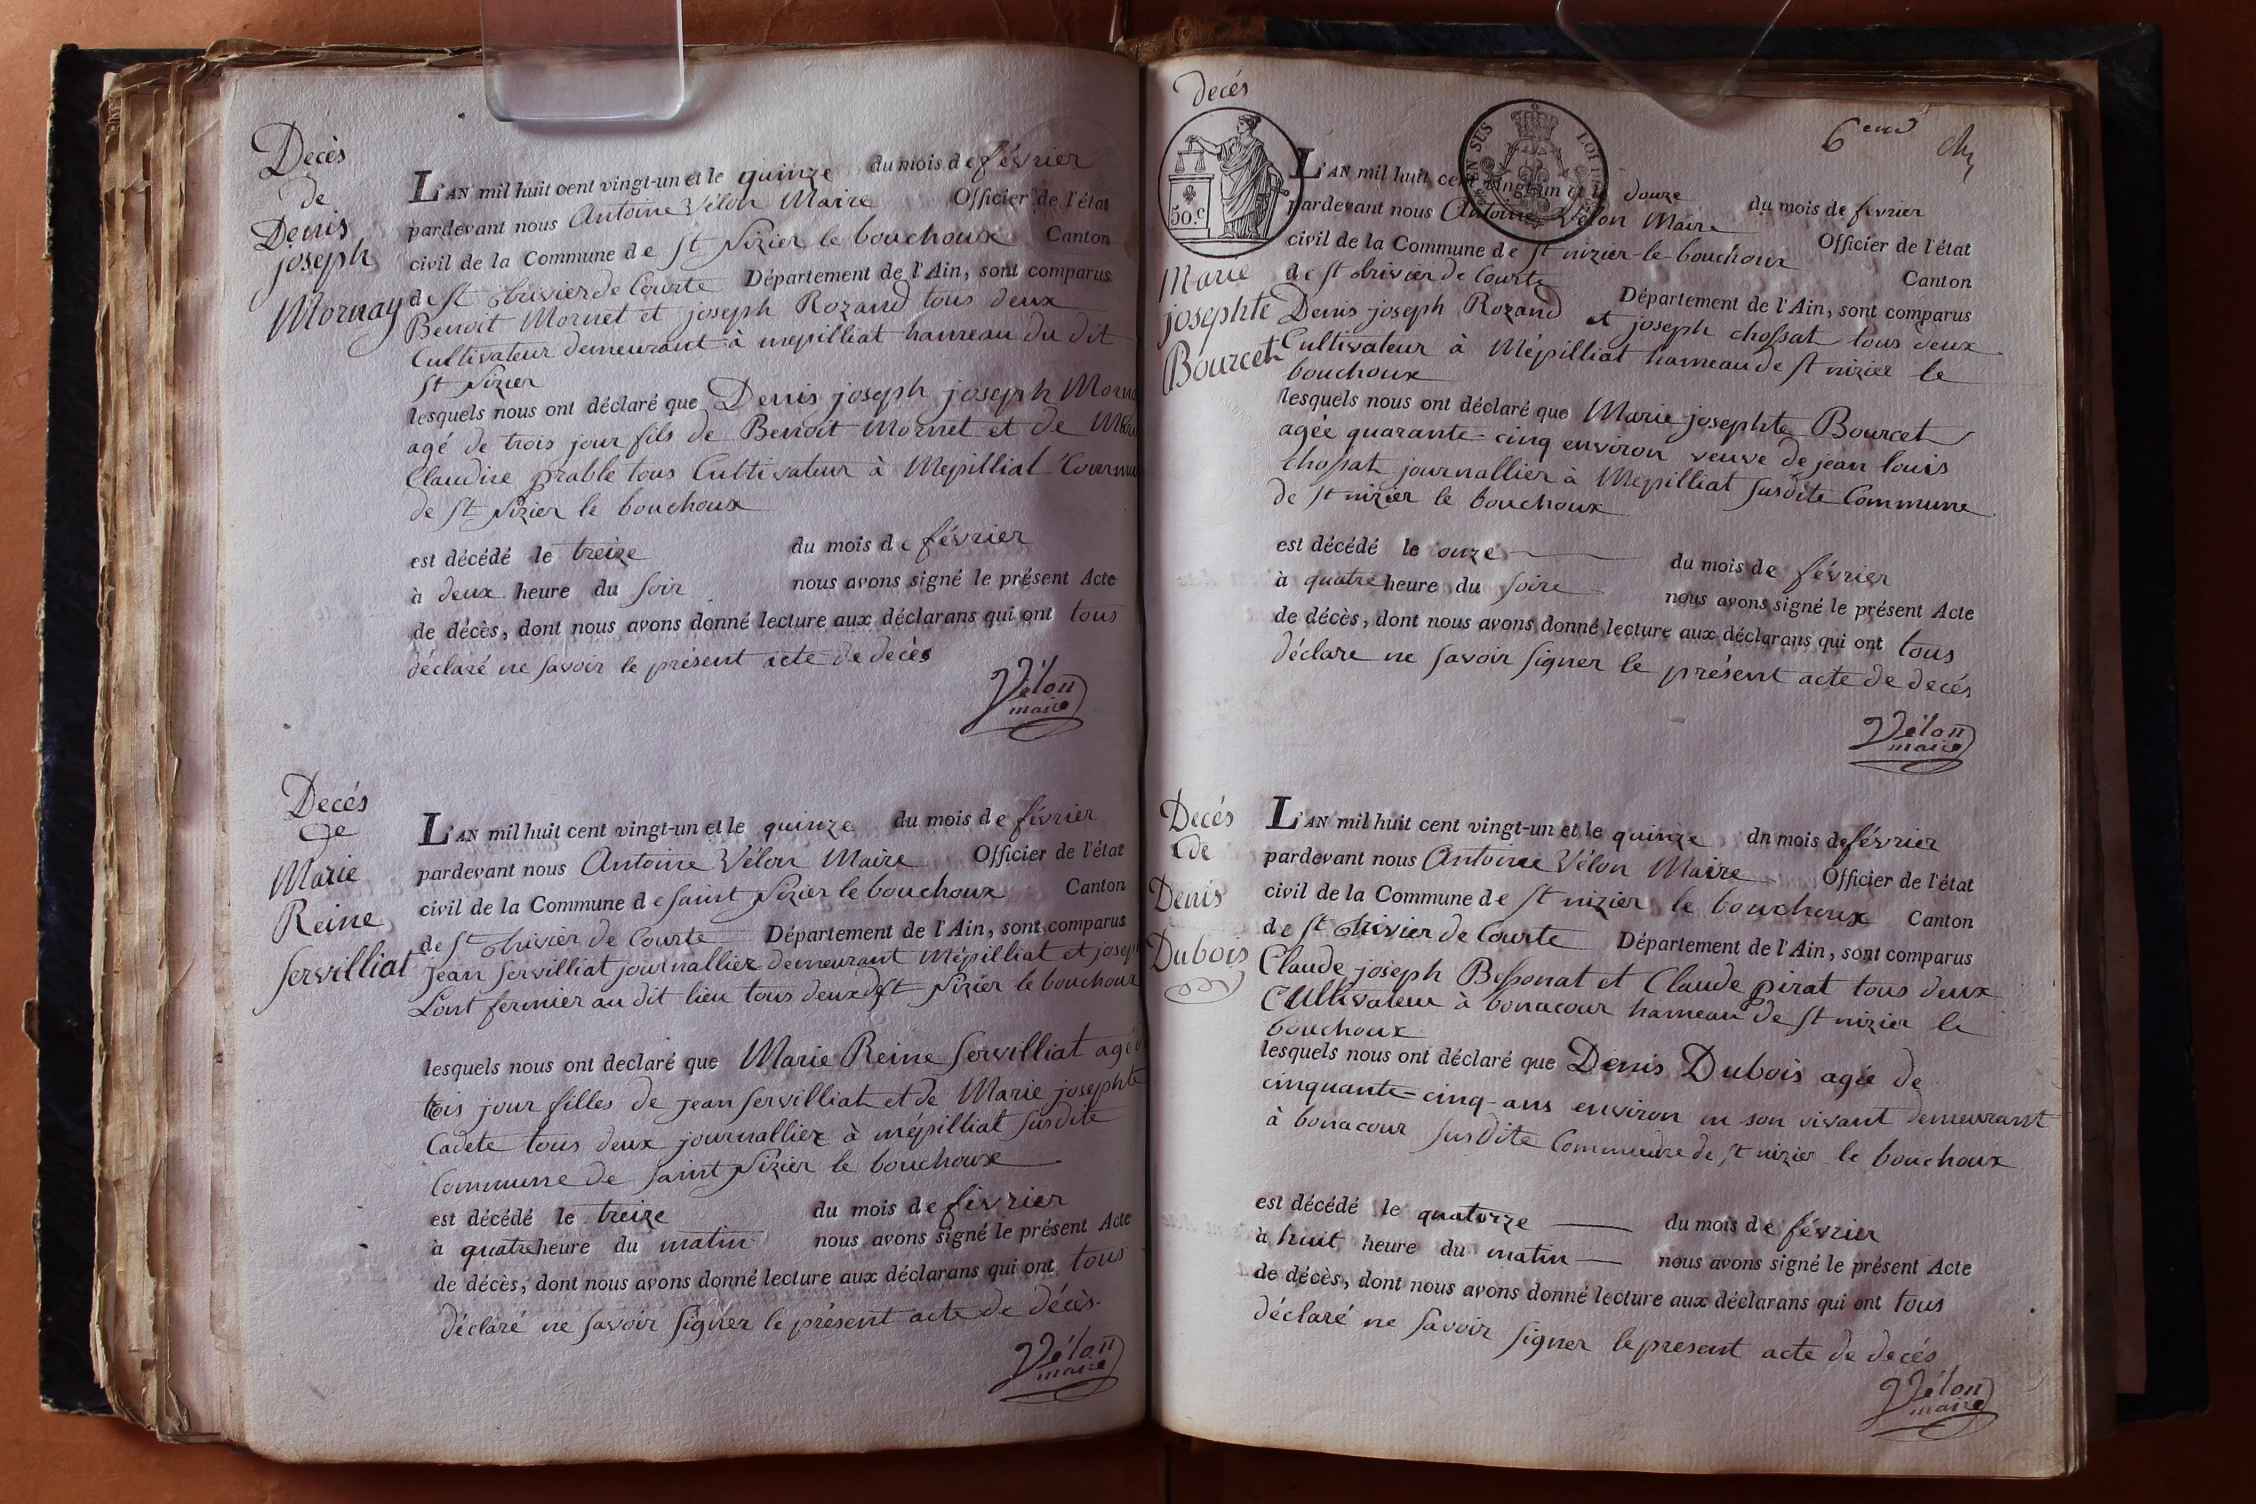 Decès
de
Denis
joseph
Mornay
L'AN mil huit cent vingt-un et le quinze du mois de février
pardevant nous Antoine Vélon Maire Officier de l'état
civil de la Commune de St Nizier le bouchoux Canton
de St Trivier de Courte Département de l'Ain, sont comparus
Benoit Mornet et joseph Rozand tous deux
Cultivateur demeurant à mepilliat hameau du dit
St Nizier
lesquels nous ont déclaré que Denis joseph joseph Morn
agé de trois jour fils de Benoit Mornet et de
Claudine prable tous Cultivateur à Mepilliat Commu
de St Nizier le bouchoux
est décédé le treize du mois de février
à deux heure du soir nous avons signé le présent Acte
de décès, dont nous avons donné lecture aux déclarans qui ont tous
déclaré ne savoir le présent acte de decès
Vélon
maire
Decés
de
Marie
Reine
Servilliat
L'AN mil huit cent vingt-un et le quinze du mois de février
pardevant nous Antoine Vélon Maire Officier de l'état
civil de la Commune de saint Nizier le bouchoux Canton
de St Trivier de Courte Département de l'Ain, sont comparus
Jean Servilliat journallier demeurant Mépilliat et josep
Lont fermier au dit lieu tous deux de St Nizier le bouchoux
lesquels nous ont declaré que Marie Reine Servilliat agé
tois jour filles de jean Servilliat et de Marie josephte
Cadete tous deux journallier à mépilliat susdite
Commune de saint Nizier le bouchoux
est décédé le treize du mois de février
à quatre heure du matin nous avons signé le présent Acte
de décès, dont nous avons donné lecture aux déclarans qui ont tous
déclaré ne savoir signer le présent acte de décès.
Vélon
maire
Decés
50.c
6eme
Marie
josephte
Bourcet
L'AN mil huit cent vingt-un et le douze du mois de fevrier
pardevant nous Antoine Vélon Maire Officier de l'état
civil de la Commune de St nizier-le-bouchoux Canton
de St Trivier de Courte Département de l'Ain, sont comparus
Denis joseph Rozand et joseph chossat tous deux
Cultivateur à Mépilliat hameau de St nizier le
bouchoux
lesquels nous ont déclaré que Marie josephte Bourcet
agée quarante-cinq environ veuve de jean louis
Chossat journallier à Mepilliat susdite Commune
de St nizier le bouchoux
est décédé le onze du mois de février
à quatre heure du soire nous avons signé le présent Acte
de décès, dont nous avons donné lecture aux déclarans qui ont tous
déclare ne savoir signer le présent acte de decés
Vélon
maire
Decés
de
Denis
Dubois
L'AN mil huit cent vingt-un et le quinze dn mois de février
pardevant nous Antoine Vélon Maire Officier de l'état
civil de la Commune de St nizier le bouchoux Canton
de St Trivier de Courte Département de l'Ain, sont comparus
Claude joseph Bessonat et Claude pirat tous deux
Cultivateur à bonacour hameau de St nizier le
bouchoux
lesquels nous ont déclaré que Denis Dubois agée de
cinquante-cinq-ans environ en son vivant demeurant
à bonacour susdite Commune de St nizier le bouchoux
est décédé le quatorze du mois de février
à huit heure du matin nous avons signé le présent Acte
de décès, dont nous avons donné lecture aux déclarans qui ont tous
déclaré ne savoir signer le present acte de decés
Vélon
maire